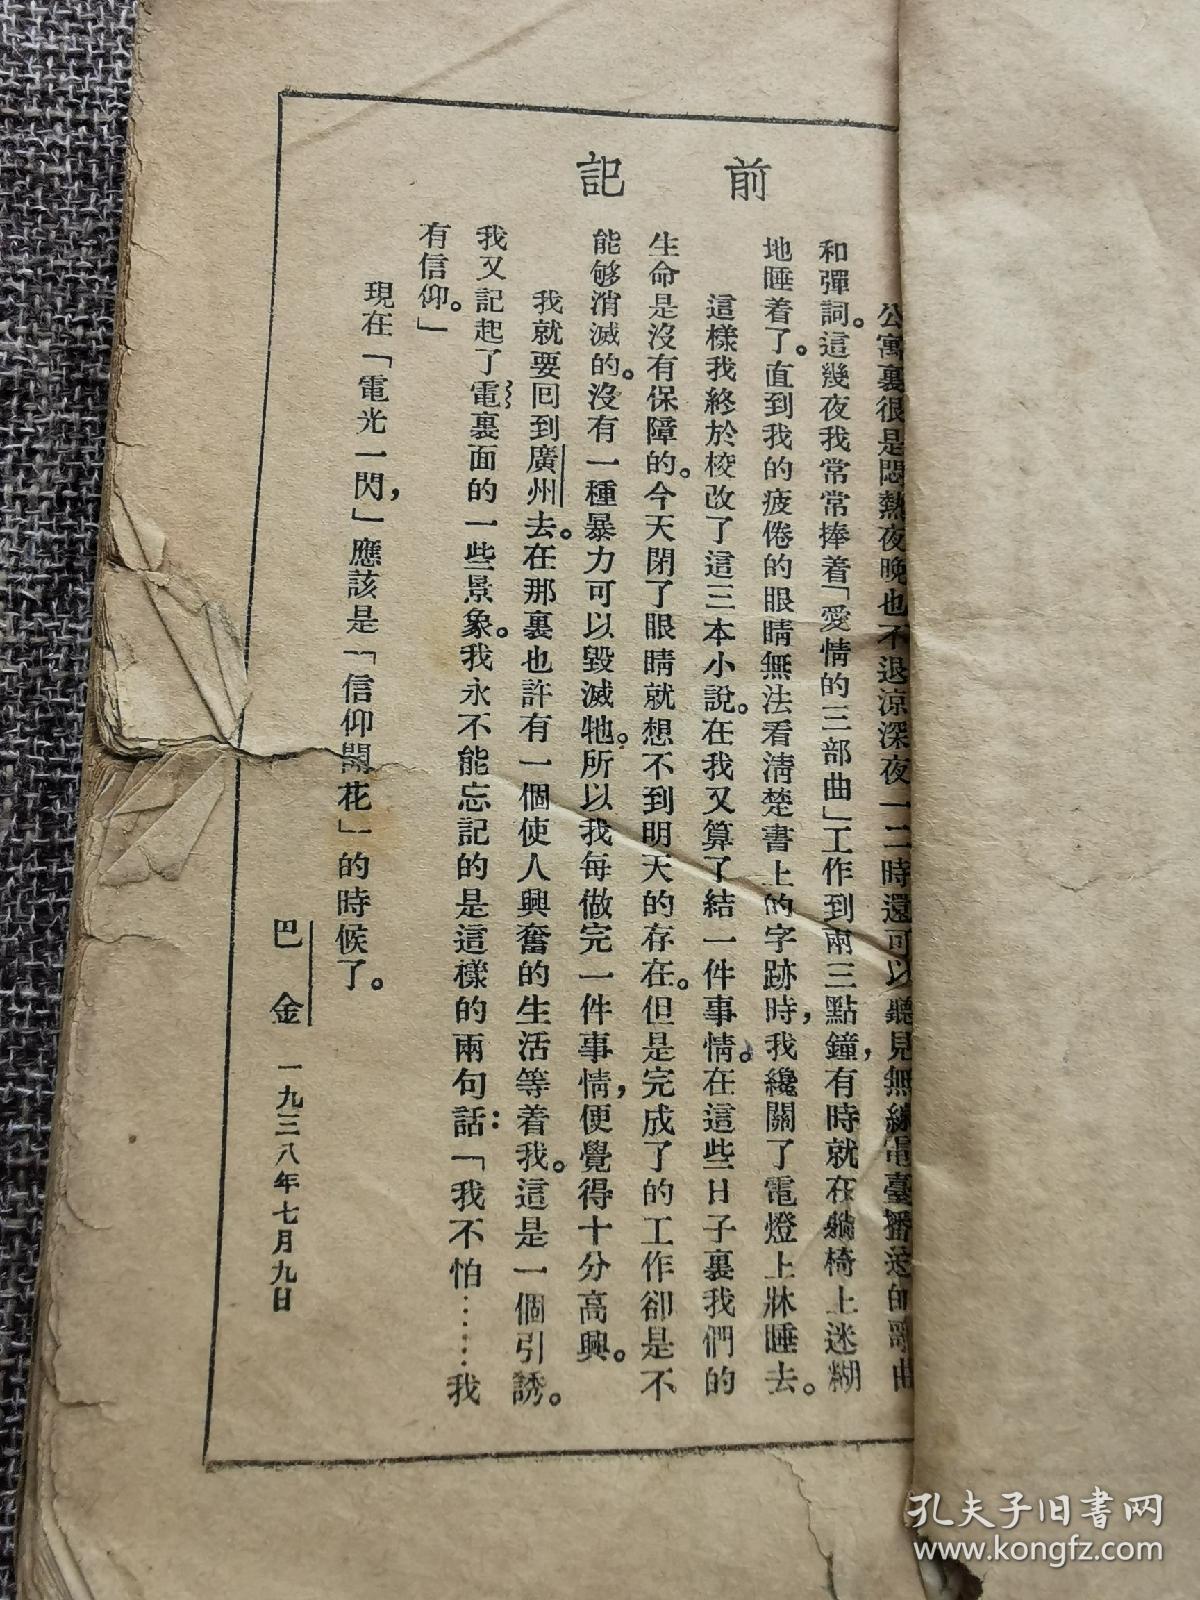 前記
公寓裏很是悶熱夜晚也不退涼深夜一二時還可以聽見無線電臺播送的歌曲
和彈詞。這幾夜我常常捧着「愛情的三部曲」工作到兩三點鐘，有時就在躺椅上迷糊
地睡着了。直到我的疲倦的眼睛無法看清楚書上的字跡時，我纔關了電燈上牀睡去。
這樣我終於校改了這三本小說。在我又算了結一件事情。在這些日子裏我們的
生命是沒有保障的。今天閉了眼睛就想不到明天的存在。但是完成了的工作卻是不
能够消滅的。沒有一種暴力可以毀滅牠。所以我每做完一件事情，便覺得十分高興。
我就要回到廣州去。在那裏也許有一個使人興奮的生活等着我。這是一個引誘。
我又記起了電裏面的一些景象。我永不能忘記的是這樣的兩句話：「我不怕……我
有信仰。」
現在「電光一閃，」應該是「信仰開花」的時候了。
巴金 一九三八年七月九日
孔夫子旧书网
www.kongfz.com